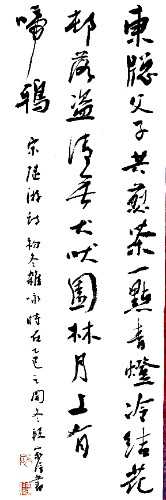 東牕父子共煎茶一點青燈冷結花
邨落盜清無犬吠園林月上有
啼鴉
宋陸游詩初冬雜咏時在乙巳之